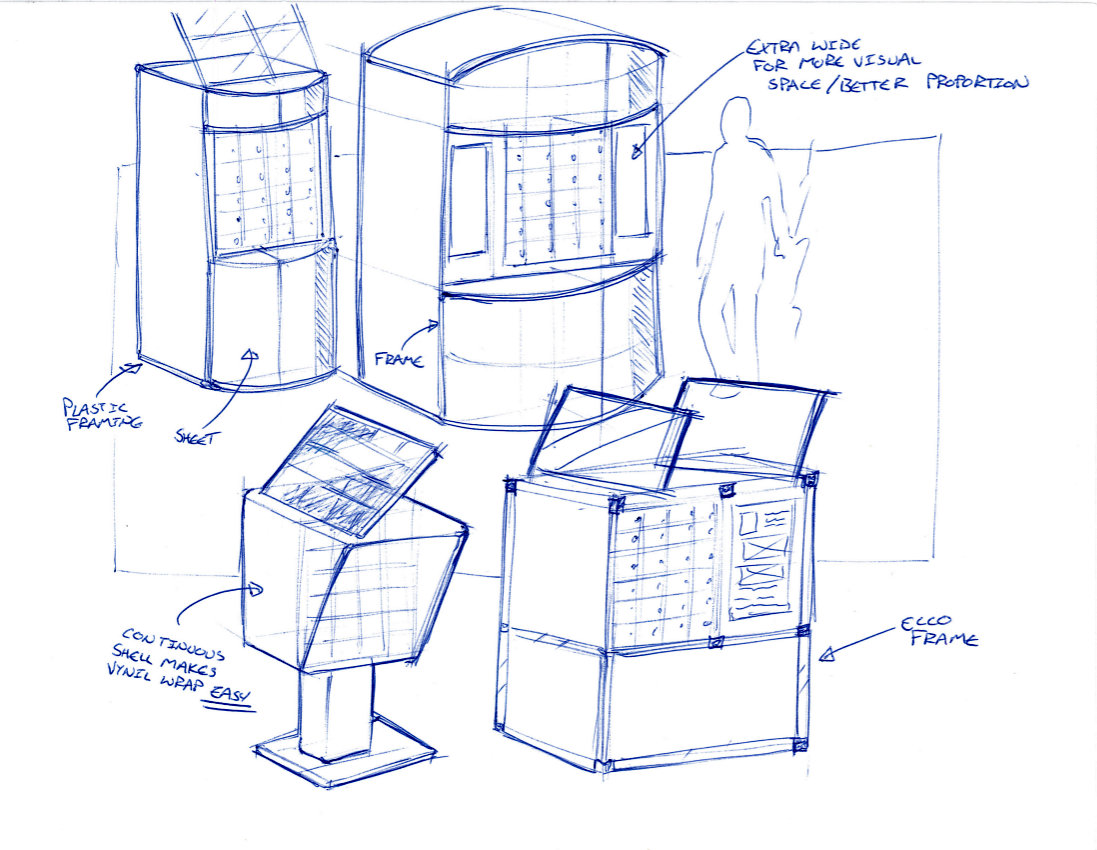 EXTRA WIDE
FOR MORE VISUAL
SPACE/BETTER PROPORTION
FRAME
PLASTIC
FRAMING
SHEET
CONTINUOUS
SHELL MAKES
VYNIL WRAP EASY
ECCO
FRAME